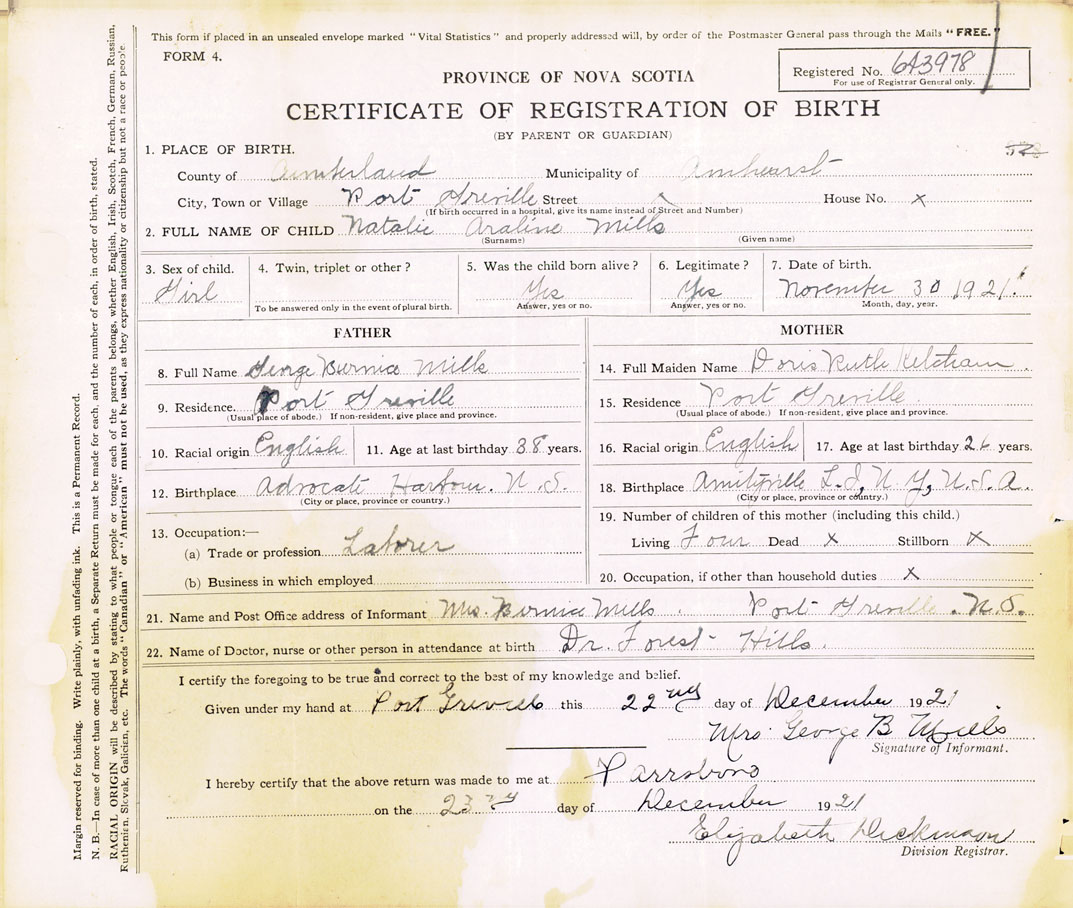 This form if placed in an unsealed envelope marked "Vital Statistics" and properly addressed will, by order of the Postmaster General pass through the Mails "FREE."
FORM 4.
Registered No. 643978
For use of Registrar General only.
PROVINCE OF NOVA SCOTIA
CERTIFICATE OF REGISTRATION OF BIRTH
(BY PARENT OR GUARDIAN)
1. PLACE OF BIRTH.
County of Cumberland Municipality of Amhearst
City, Town or Village Port Greville Street x House No. x
(If birth occurred in a hospital, give its name instead of Street and Number)
2. FULL NAME OF CHILD Natalie Araline Mills
(Surname) (Given name)
3. Sex of child. 4. Twin, triplet or other? 5. Was the child born alive? 6. Legitimate? 7. Date of birth.
Girl Yes Yes November 30 1921.
To be answered only in the event of plural birth. Answer, yes or no. Answer, yes or no. Month, day, year.
FATHER
8. Full Name George Burnice Mills
9. Residence. Port Greville
(Usual place of abode.) If non-resident, give place and province.
10. Racial origin English 11. Age at last birthday 38 years.
12. Birthplace Advocate Harbour. N.S.
(City or place, province or country.)
13. Occupation:—
(a) Trade or profession Laborer
(b) Business in which employed
MOTHER
14. Full Maiden Name Doris Ruth Ketcham.
15. Residence Port Greville.
(Usual place of abode.) If non-resident, give place and province.
16. Racial origin English 17. Age at last birthday 26 years.
18. Birthplace Amityville L.I, N.Y, U.S.A.
(City or place, province or country.)
19. Number of children of this mother (including this child.)
Living Four Dead x Stillborn x
20. Occupation, if other than household duties x
21. Name and Post Office address of Informant Mrs. Burnice Mills. Port Greville. N.S.
22. Name of Doctor, nurse or other person in attendance at birth Dr. Forest Hills.
I certify the foregoing to be true and correct to the best of my knowledge and belief.
Given under my hand at Port Greville this 22nd day of December 1921
Mrs. George B Mills
Signature of Informant.
I hereby certify that the above return was made to me at Parrsboro
on the 23rd day of December 1921
Elizabeth Dickinson
Division Registrar.
Margin reserved for binding. Write plainly, with unfading ink. This is a Permanent Record.
N. B.—In case of more than one child at a birth, a Separate Return must be made for each, and the number of each, in order of birth, stated.
RACIAL ORIGIN will be described by stating to what people or tongue each of the parents belongs, whether English, Irish, Scotch, French, German, Russian,
Ruthenian, Slovak, Galician, etc. The words "Canadian" or "American" must not be used, as they express nationality or citizenship but not a race or people.